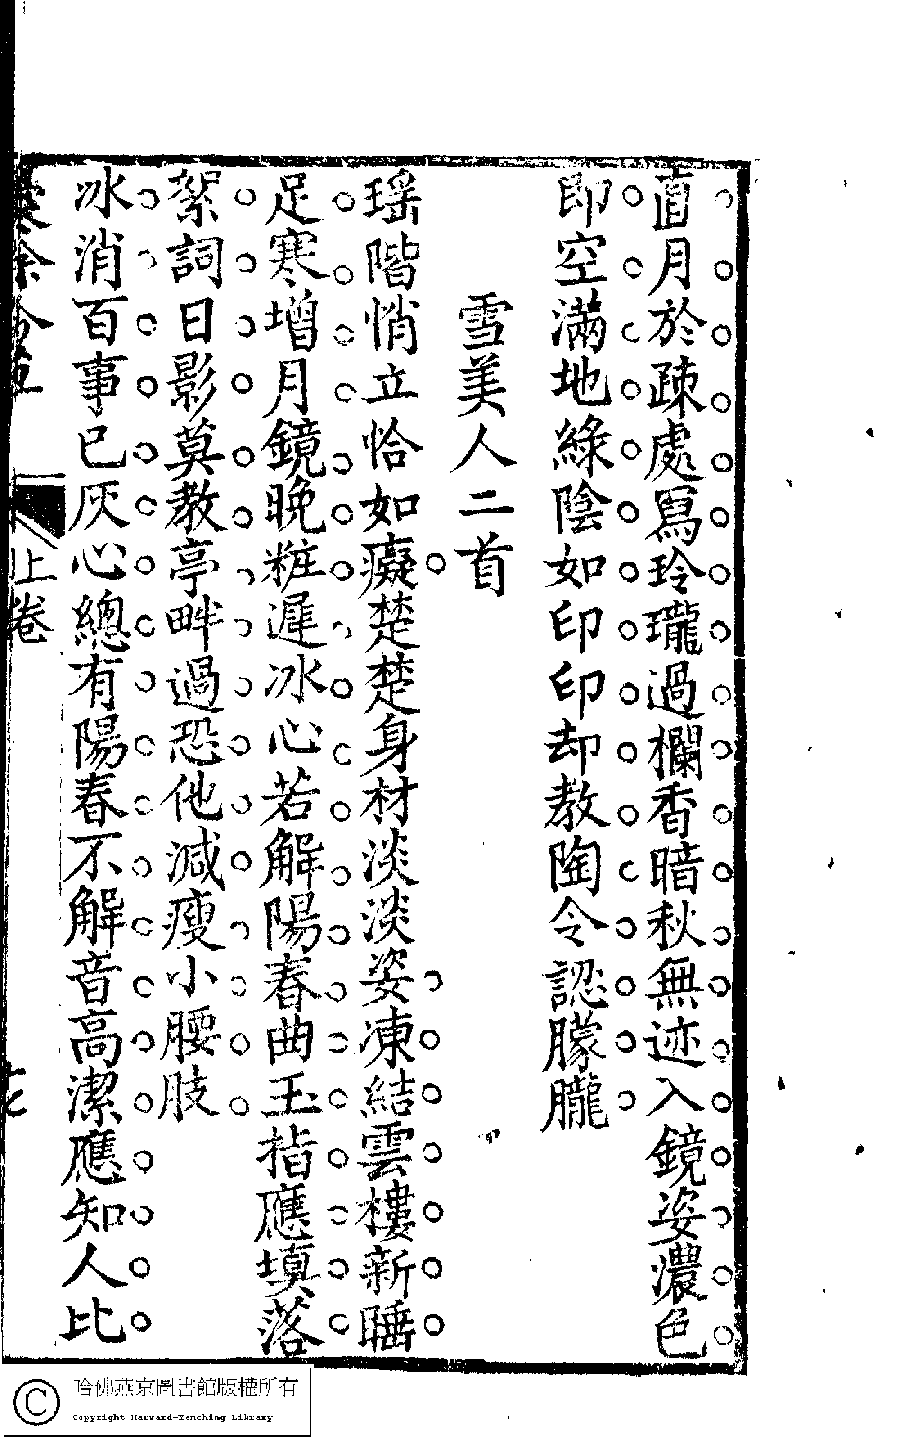 直月於疎處寫玲瓏過欄香暗秋無迹入鏡姿濃色
即空滿地綠陰如印印却教陶令認朦朧
雪美人二首
瑶階悄立恰如癡楚楚身材淡淡姿凍結雲樓新睡
足寒增月鏡晚粧遲冰心若解陽春曲玉指應填落
絮詞日影莫教亭畔過恐他減瘦小腰肢
冰消百事已灰心總有陽春不解音高潔應知人比
上卷
哈佛燕京圖書館版權所有
Copyright Harvard-Yenching Library